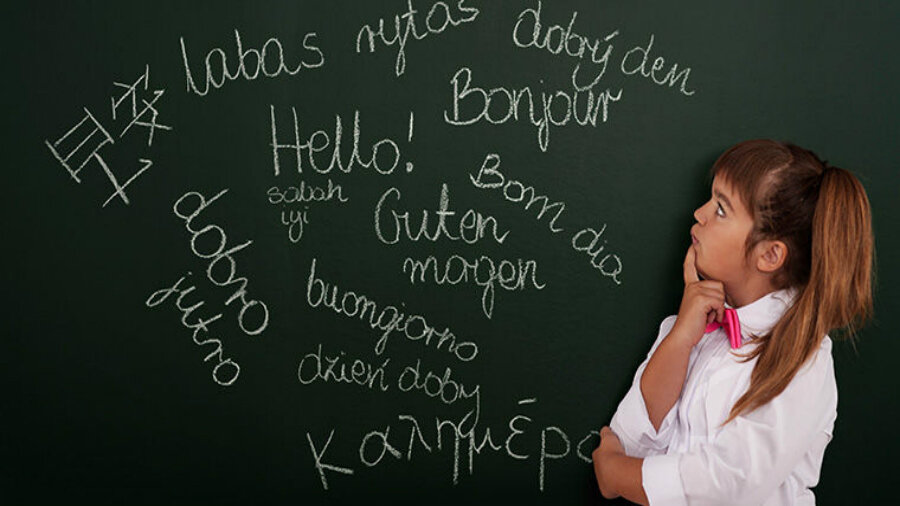 labas rytas
dobrý den
早安
Hello!
Bonjour
sabah
iyi
Guten
morgen
Bom dia
dobro
jutro
buongiorno
dzień doby
καλημέρα